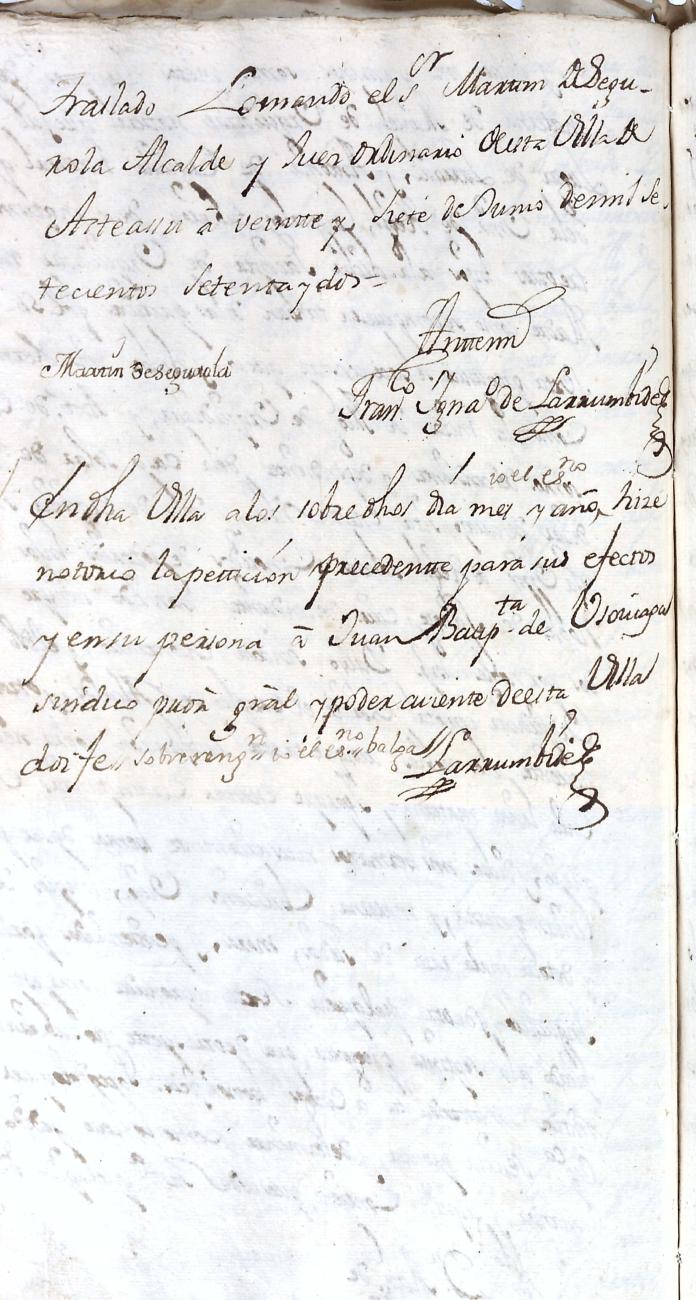 Traslado Lomando el sr Martin de Segu-
rola Alcalde y Juez ordinario de esta Villa de
Asteasu â veintte y siete de Junio de mil se-
tecientos Setenta y dos=
Martin de Segurola
Antemi
Franco Ignao de Larrumbide
io el esno
En dha Villa a los sobredhos dia mes y año, hize
notorio la petticion precedentte para sus efectos
y en su persona â Juan Bapta de Usoviaga
sindico procr gral y poder aviente de esta Villa
doi fe, sobrerengn io el esno balga Larrumbide